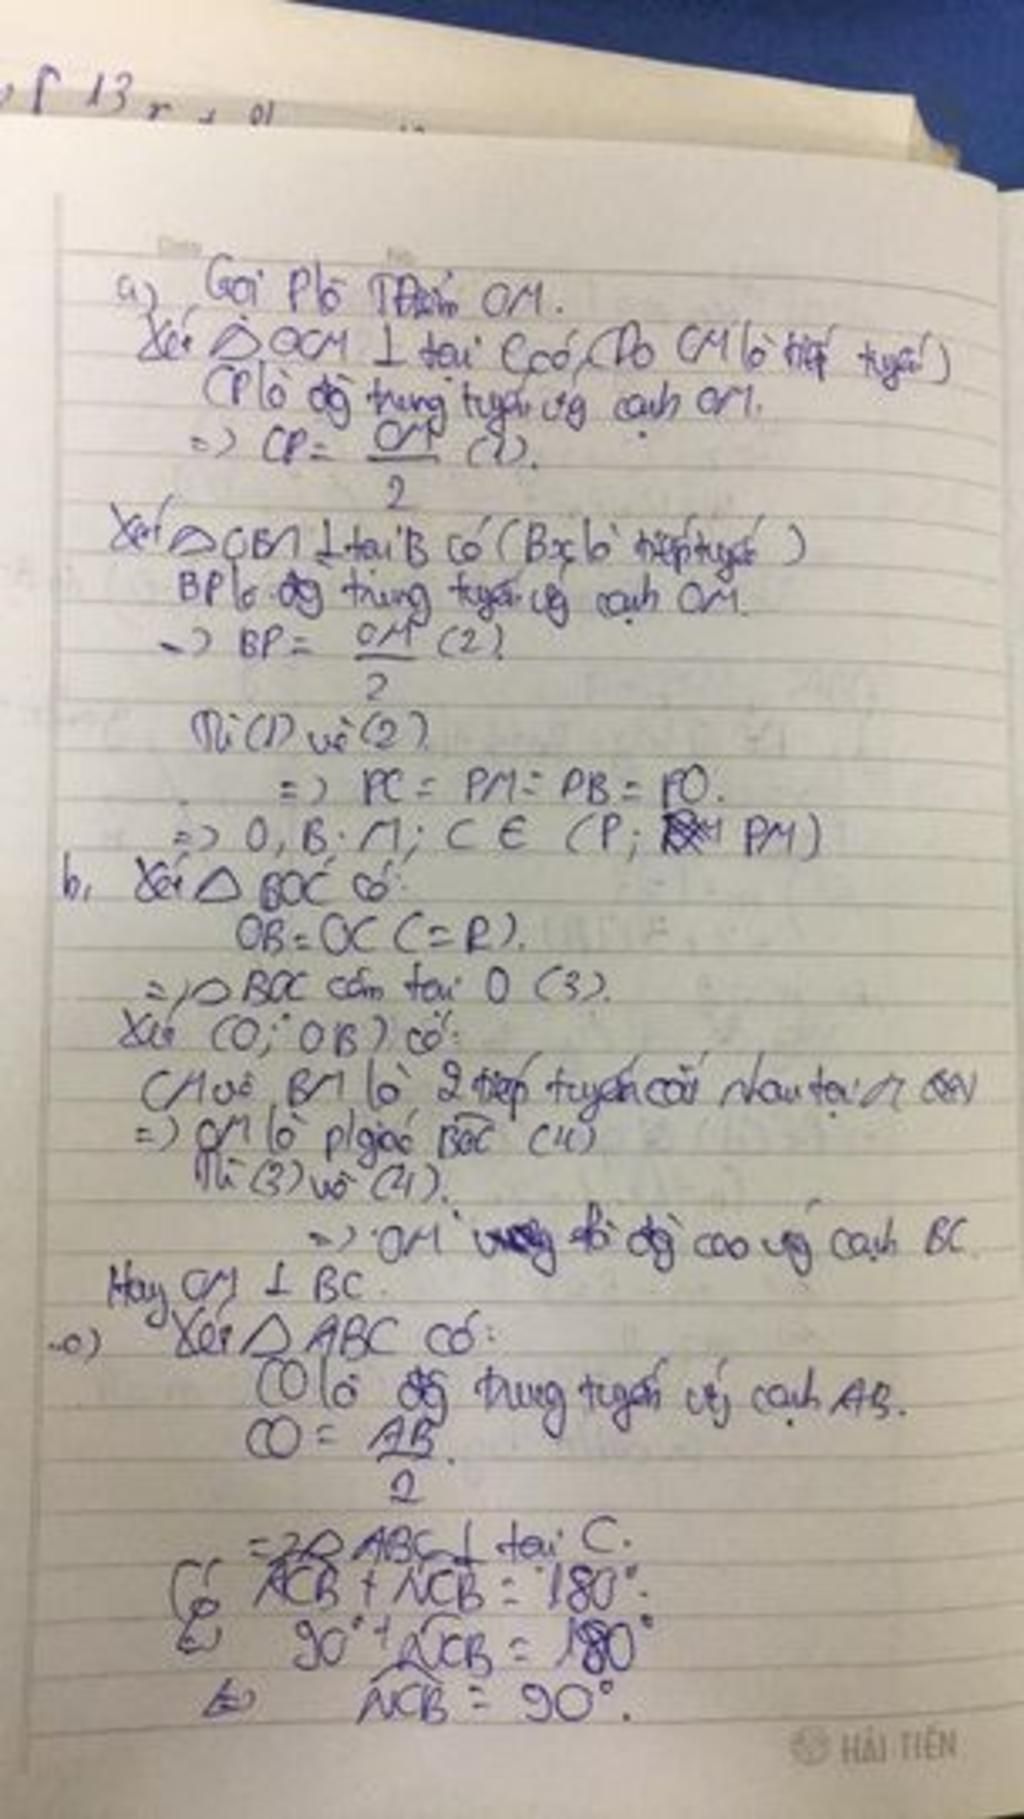 13
Date No
a) Gọi P là TĐiểm OM.
Xét △ OCM ⊥ tại C có (Do CM là tiếp tuyến)
CP là đg trung tuyến ứg cạnh OM.
=> CP = OM/2 (1).
Xét △ OBM ⊥ tại B có (Bx là tiếp tuyến)
BP là đg trung tuyến ứg cạnh OM.
=> BP = OM/2 (2).
Từ (1) và (2).
=> PC = PM = PB = PO.
=> O, B, M; C ∈ (P; PM)
b, Xét △ BOC có:
OB = OC (= R).
=> △ BOC cân tại O (3).
Xét (O; OB) có:
CM và BM là 2 tiếp tuyến cắt nhau tại M
=> OM là p/giác BOC (4)
Từ (3) và (4).
=> OM là đg cao ứg cạnh BC
Hay OM ⊥ BC.
c) Xét △ ABC có:
CO là đg trung tuyến ứg cạnh AB.
CO = AB/2.
=> △ ABC ⊥ tại C.
Có ACB + NCB = 180°.
<=> 90° + NCB = 180°
<=> NCB = 90°.
HẢI TIẾN